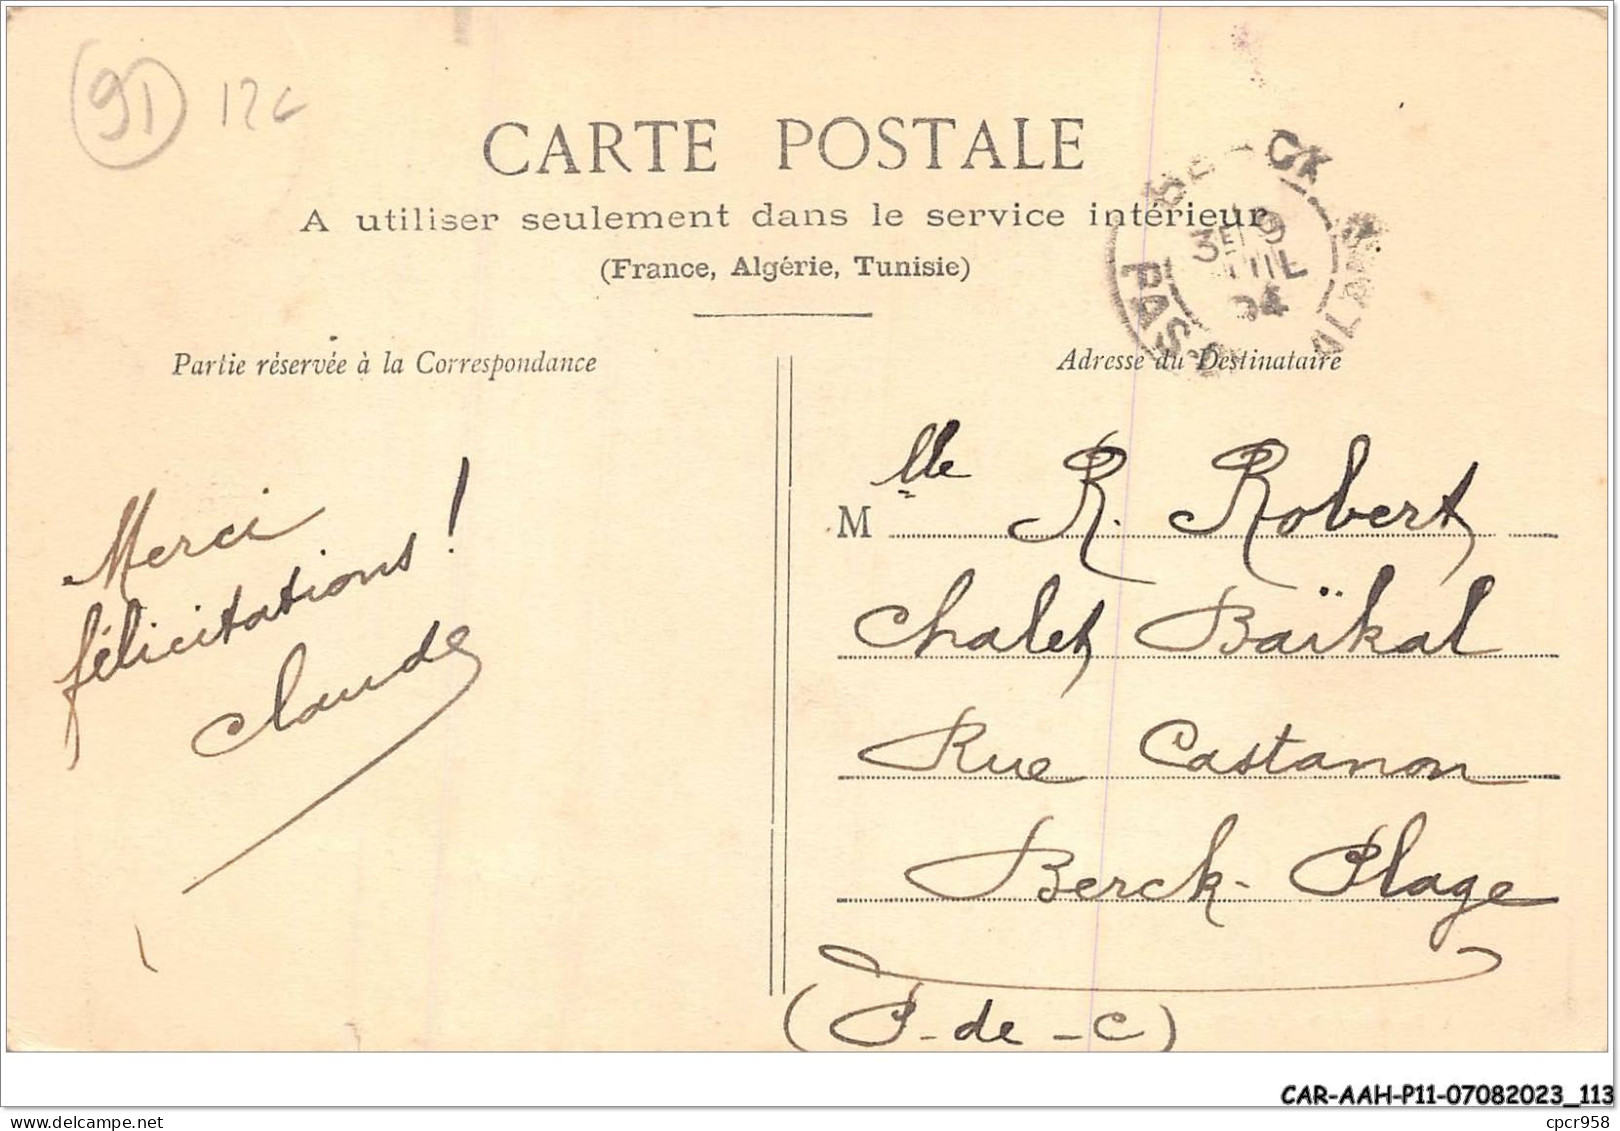 91 12c
CARTE POSTALE
A utiliser seulement dans le service intérieur
(France, Algérie, Tunisie)
3E 9
JUIL
04
PAS
Partie réservée à la Correspondance
Adresse du Destinataire
Merci
félicitations !
Claude
Mlle R. Robert
Chalet Baïkal
Rue Castanon
Berck-Plage
(P-de-C)
CAR-AAH-P11-07082023_113
cpcr958